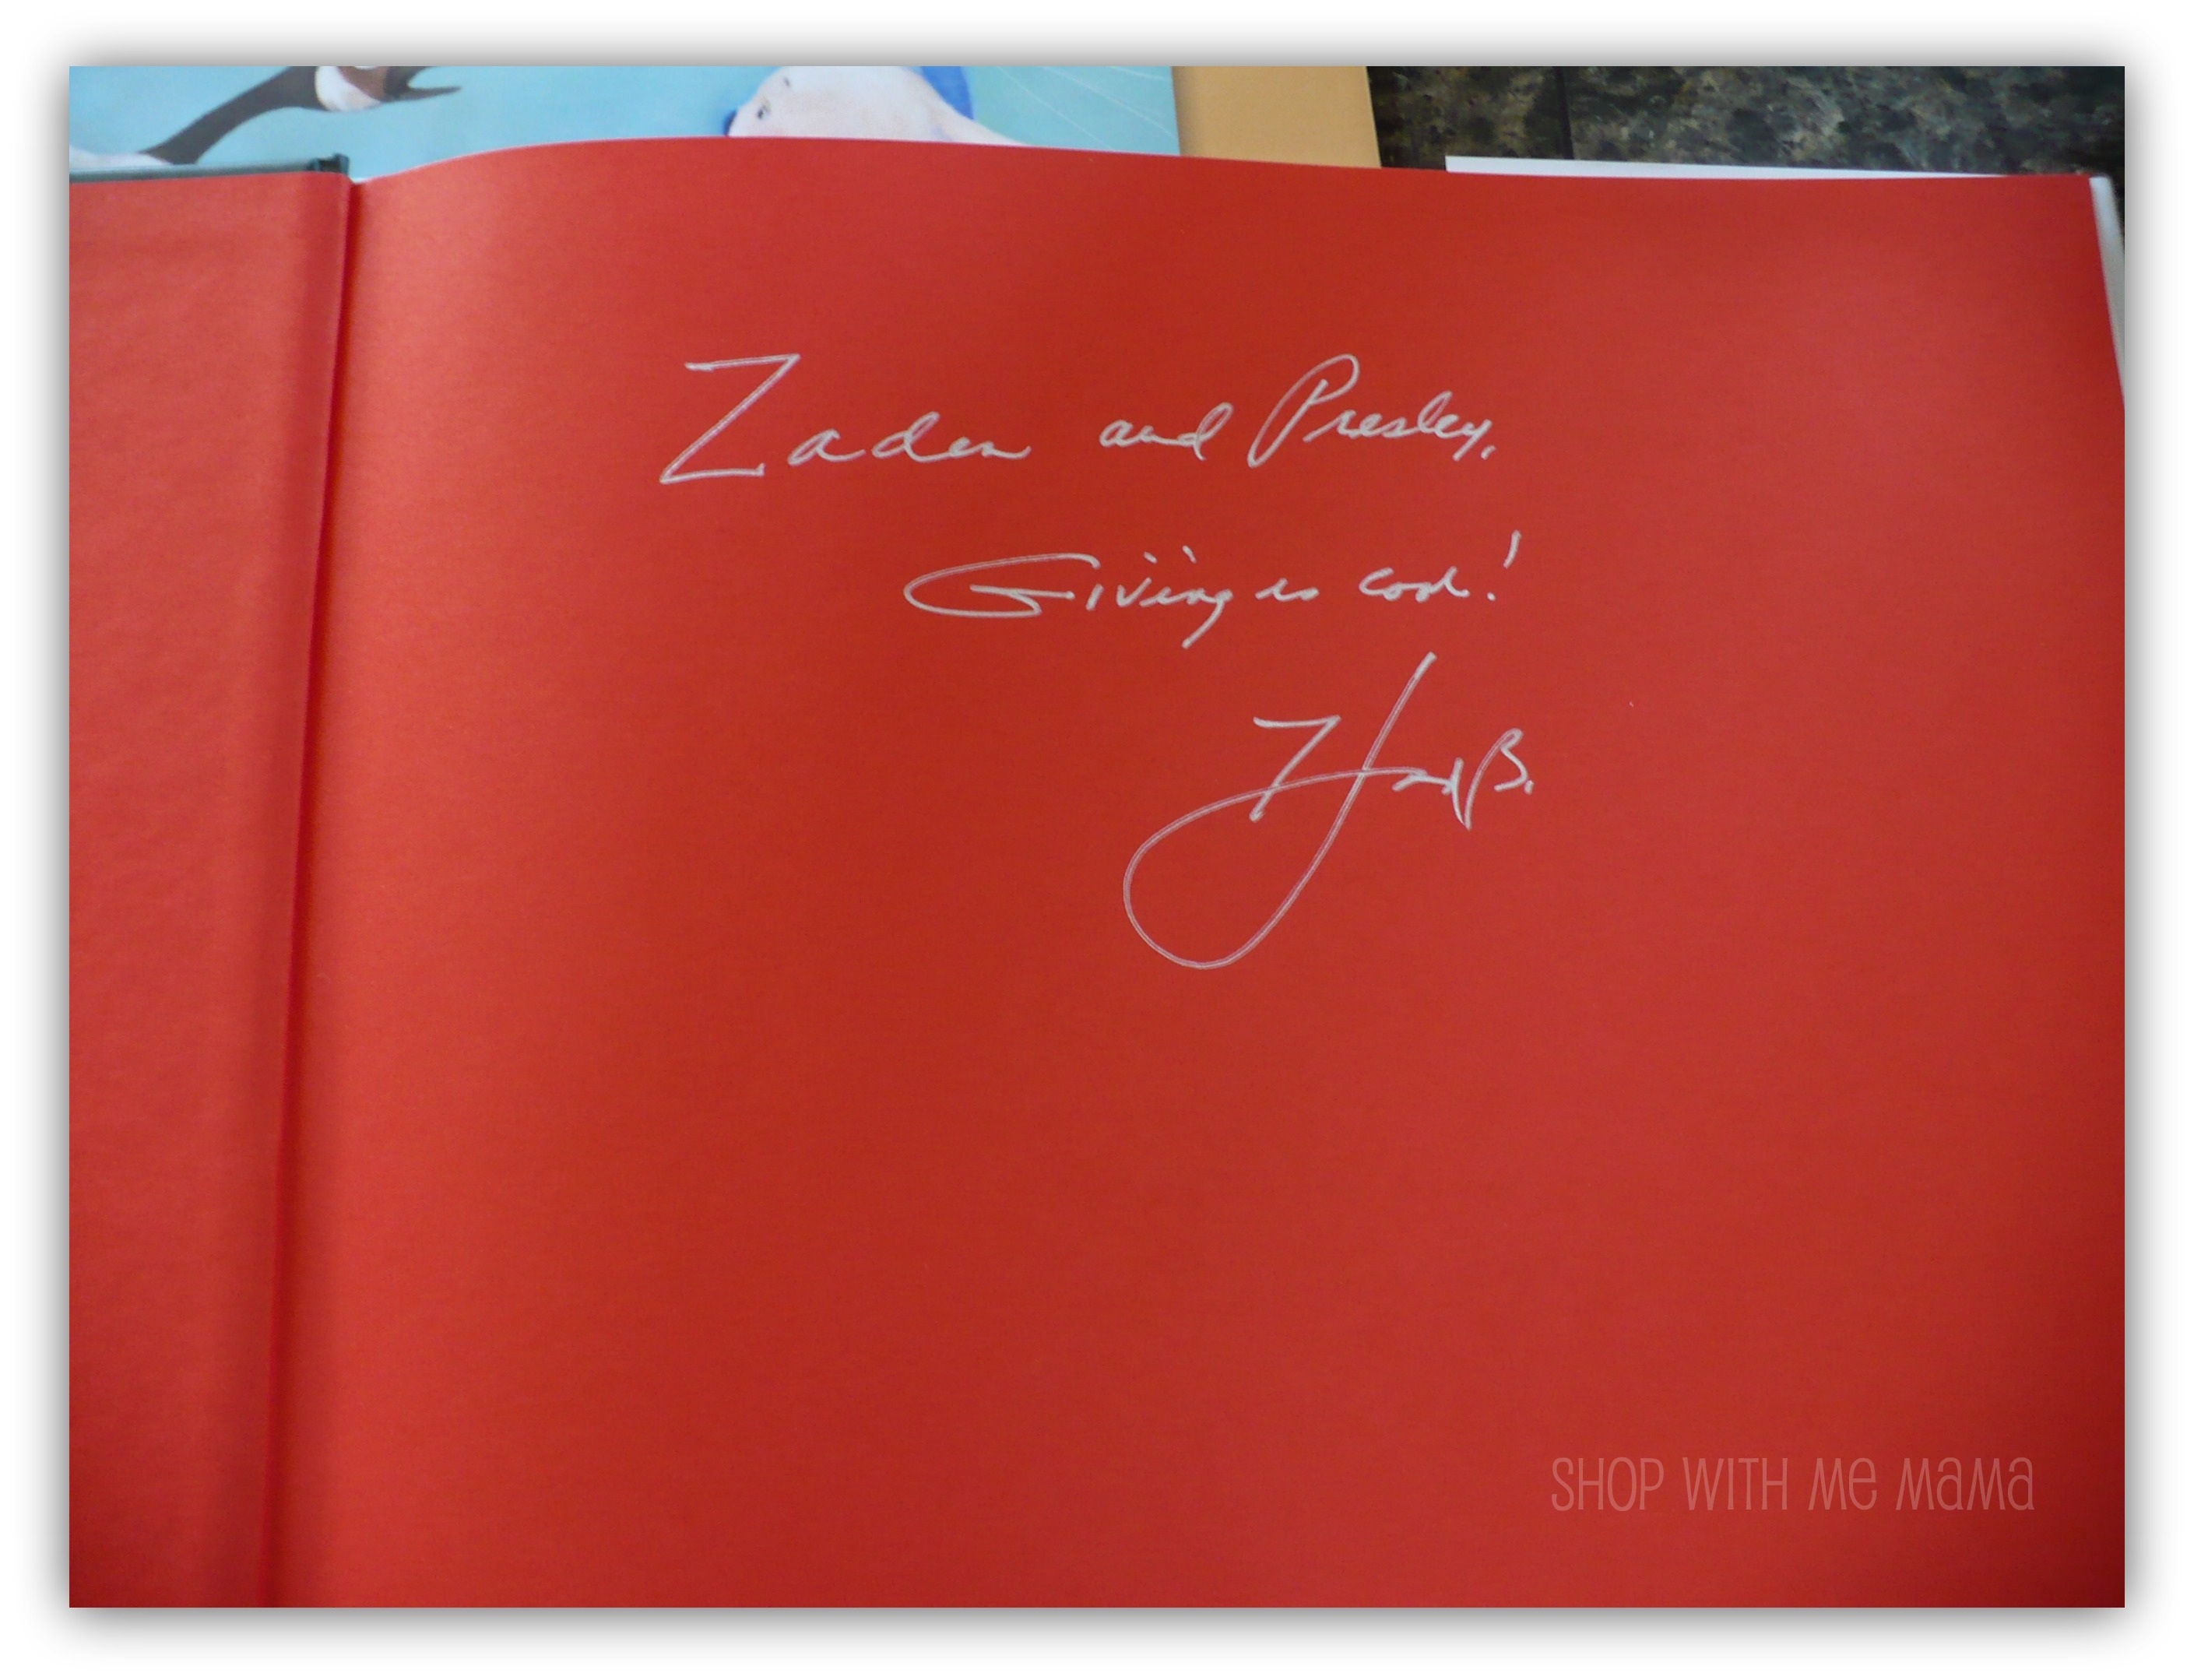 Zaden and Presley,
Giving is cool!
B.
SHOP WITH Me MaMa